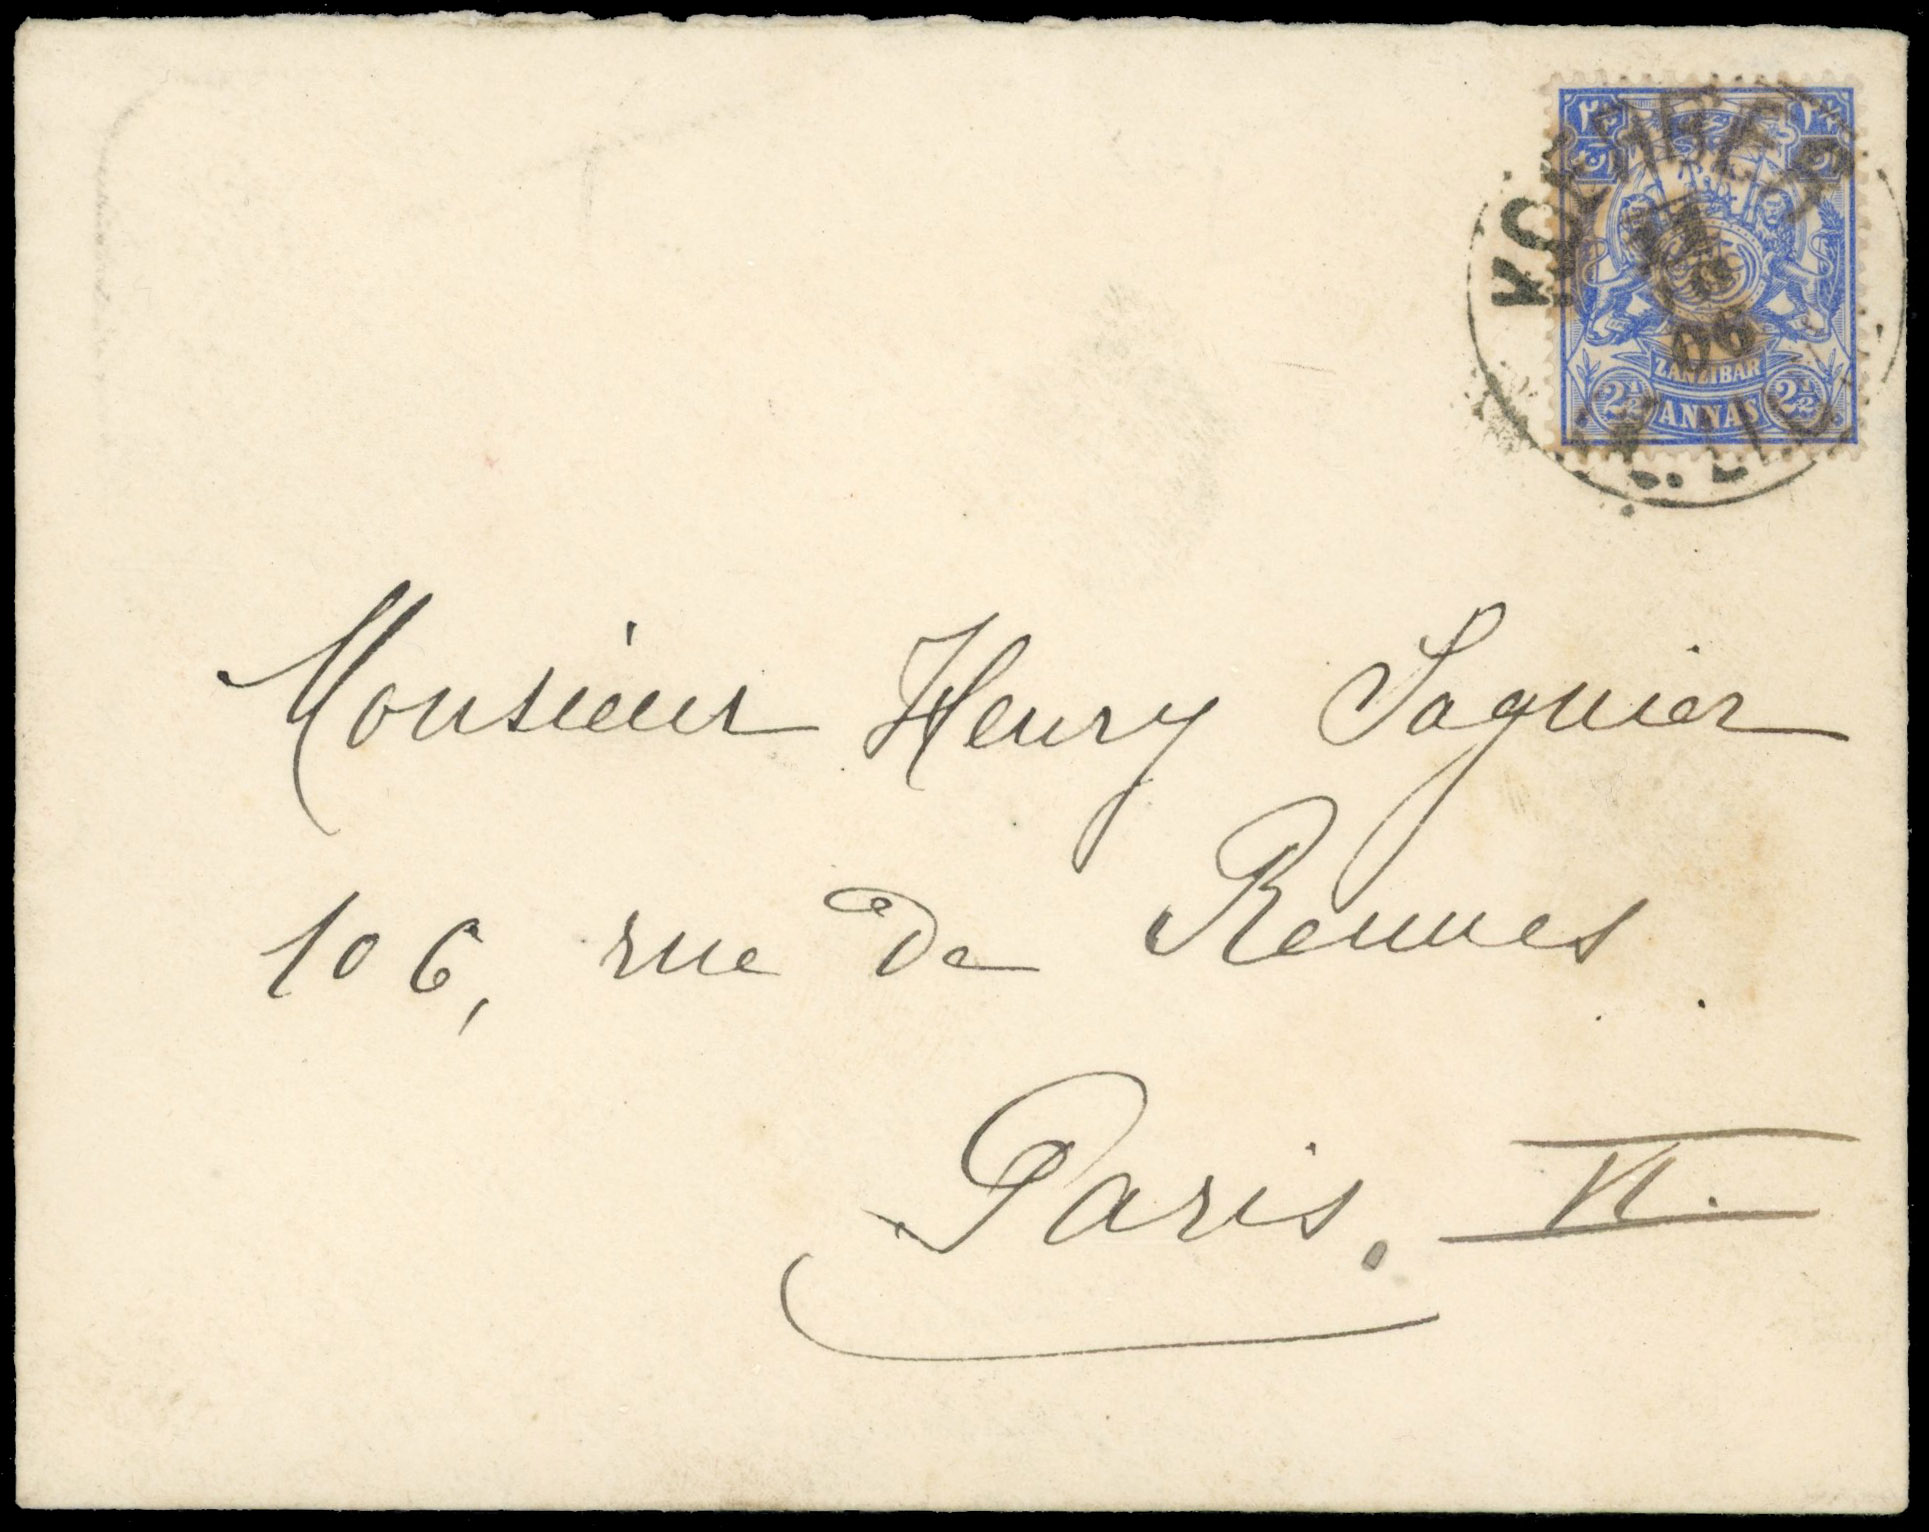 ٢½ ٢½
11
9
06
ZANZIBAR
2½ ANNAS 2½
Monsieur Henry Sagnier
106, rue de Rennes
Paris. VI.